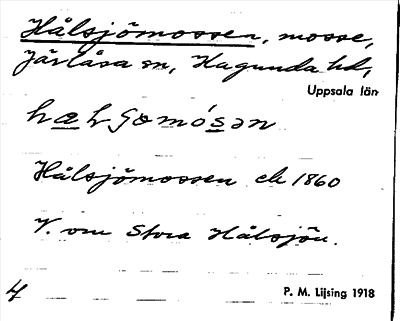 Hålsjömossen, mosse,
Järlåsa sn, Hagunda hd,
Uppsala län
Hålsjömossen ek 1860
V. om Stora Hålsjön.
P. M. Lijsing 1918